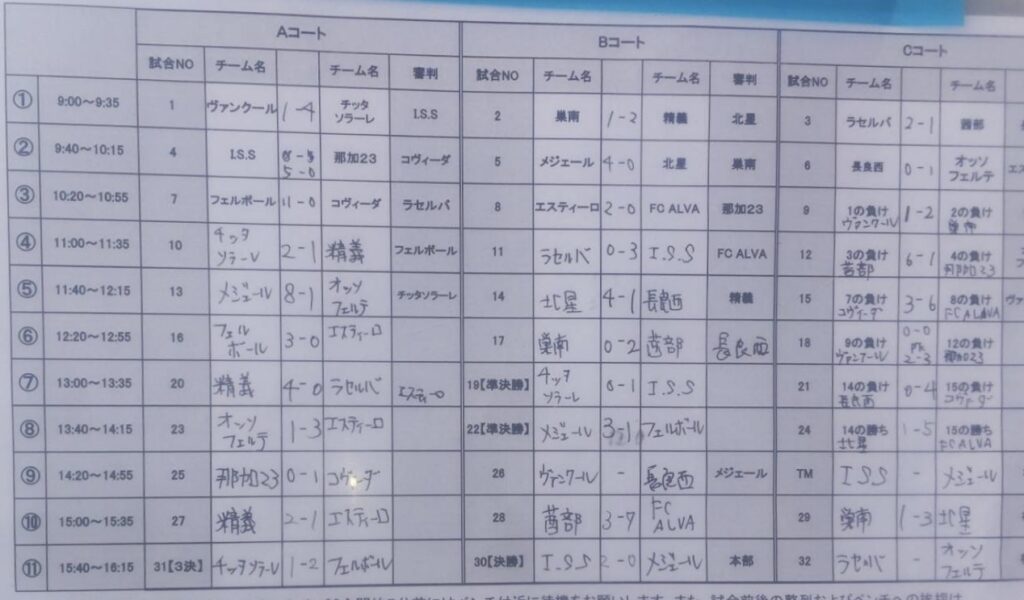 Aコート Bコート Cコート
試合NO チーム名 チーム名 審判 試合NO チーム名 チーム名 審判 試合NO チーム名 チーム名
① 9:00~9:35 1 ヴァンクール 1-4 チッタソラーレ I.S.S 2 巣南 1-2 精義 北星 3 ラセルバ 2-1 茜部
② 9:40~10:15 4 I.S.S 5-0 那加23 コヴィーダ 5 メジェール 4-0 北星 巣南 6 長良西 0-1 オッソフェルテ
③ 10:20~10:55 7 フェルボール 11-0 コヴィーダ ラセルバ 8 エスティーロ 2-0 FC ALVA 那加23 9 1の負け ヴァンクール 1-2 2の負け 巣南
④ 11:00~11:35 10 チッタソラーレ 2-1 精義 フェルボール 11 ラセルバ 0-3 I.S.S FC ALVA 12 3の負け 茜部 6-1 4の負け 那加23
⑤ 11:40~12:15 13 メジェール 8-1 オッソフェルテ チッタソラーレ 14 北星 4-1 長良西 精義 15 7の負け コヴィーダ 3-6 8の負け FC ALAVA
⑥ 12:20~12:55 16 フェルボール 3-0 エスティーロ 17 巣南 0-2 茜部 長良西 18 9の負け ヴァンクール 0-0 PK 2-3 12の負け 那加23
⑦ 13:00~13:35 20 精義 4-0 ラセルバ エスティーロ 19【準決勝】 チッタソラーレ 0-1 I.S.S 21 14の負け 長良西 0-4 15の負け コヴィーダ
⑧ 13:40~14:15 23 オッソフェルテ 1-3 エスティーロ 22【準決勝】 メジェール 3-1 フェルボール 24 14の勝ち 北星 1-5 15の勝ち FC ALVA
⑨ 14:20~14:55 25 那加23 0-1 コヴィーダ 26 ヴァンクール - 長良西 メジェール TM I.S.S - メジェール
⑩ 15:00~15:35 27 精義 2-1 エスティーロ 28 茜部 3-7 FC ALVA 29 巣南 1-3 北星
⑪ 15:40~16:15 31【3決】 チッタソラーレ 1-2 フェルボール 30【決勝】 I.S.S 2-0 メジェール 本部 32 ラセルバ - オッソフェルテ